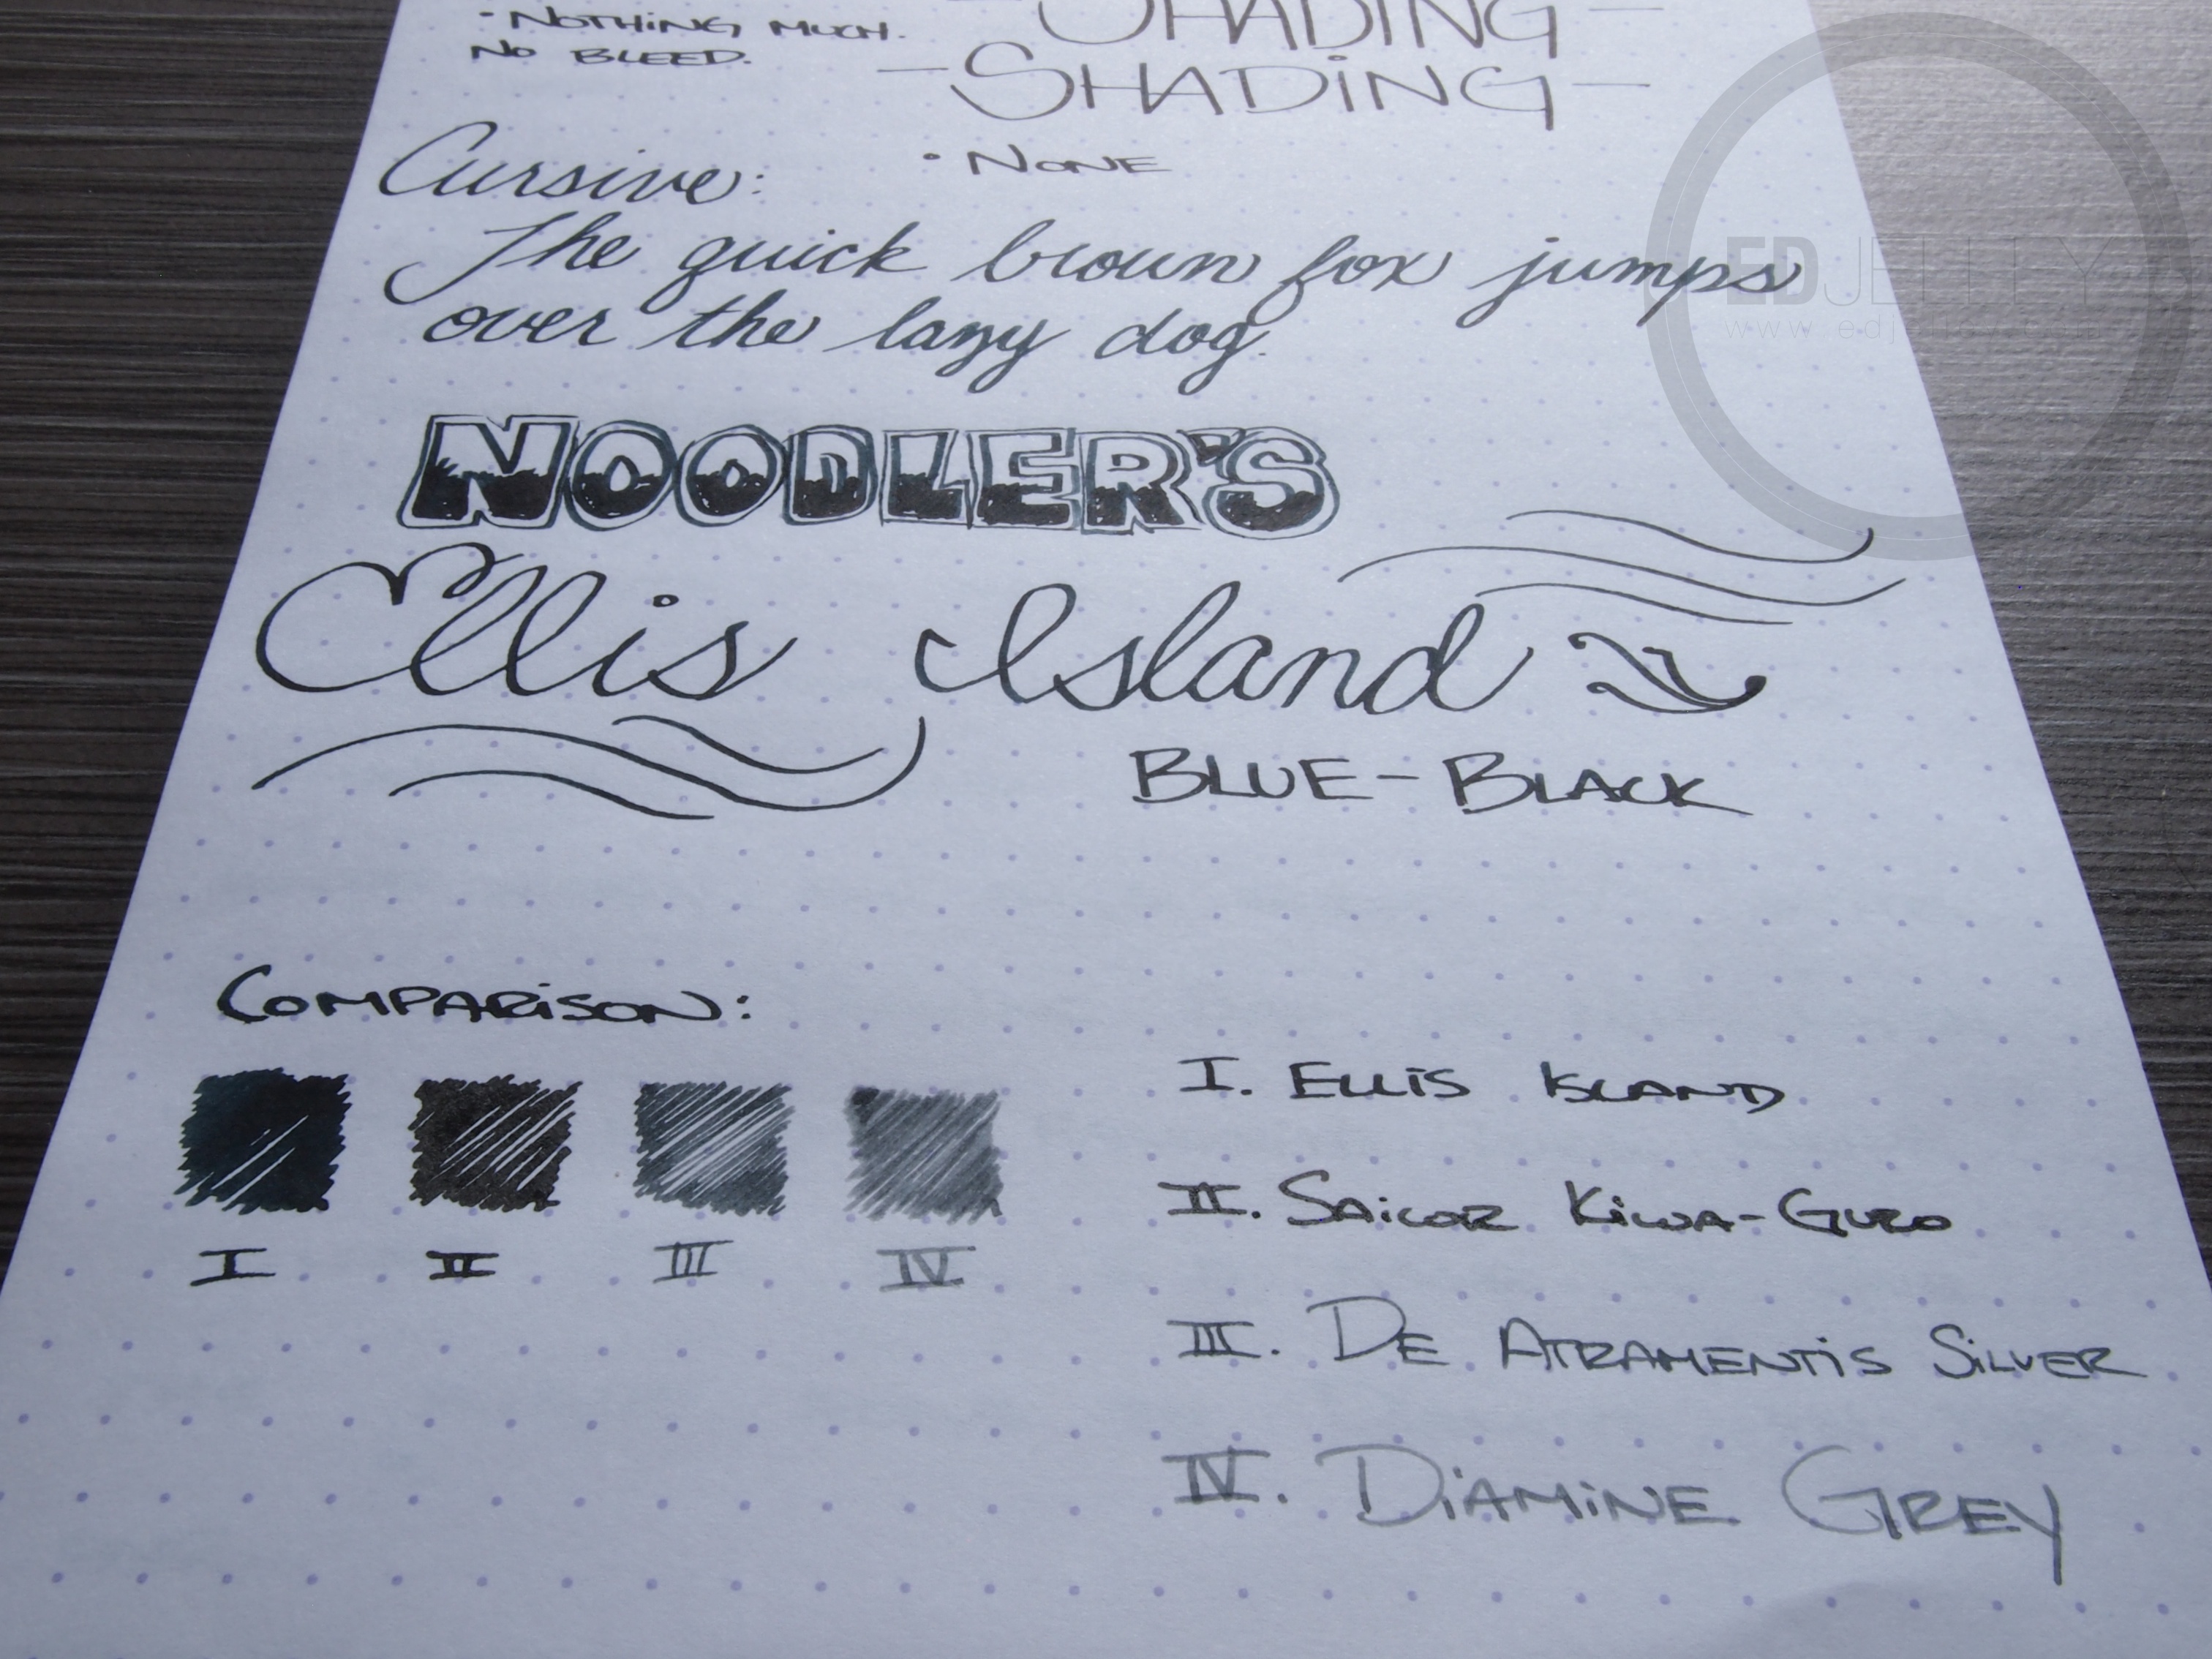 • NOTHING MUCH.
NO BLEED.
SHADING
-SHADING-
• NONE
Cursive:
The quick brown fox jumps
over the lazy dog.
NOODLER'S
Ellis Island
BLUE-BLACK
COMPARISON:
I II III IV
I. ELLIS ISLAND
II. SAILOR KIWA-GURO
III. DE ATRAMENTIS SILVER
IV. DIAMINE GREY
EDJELLEY